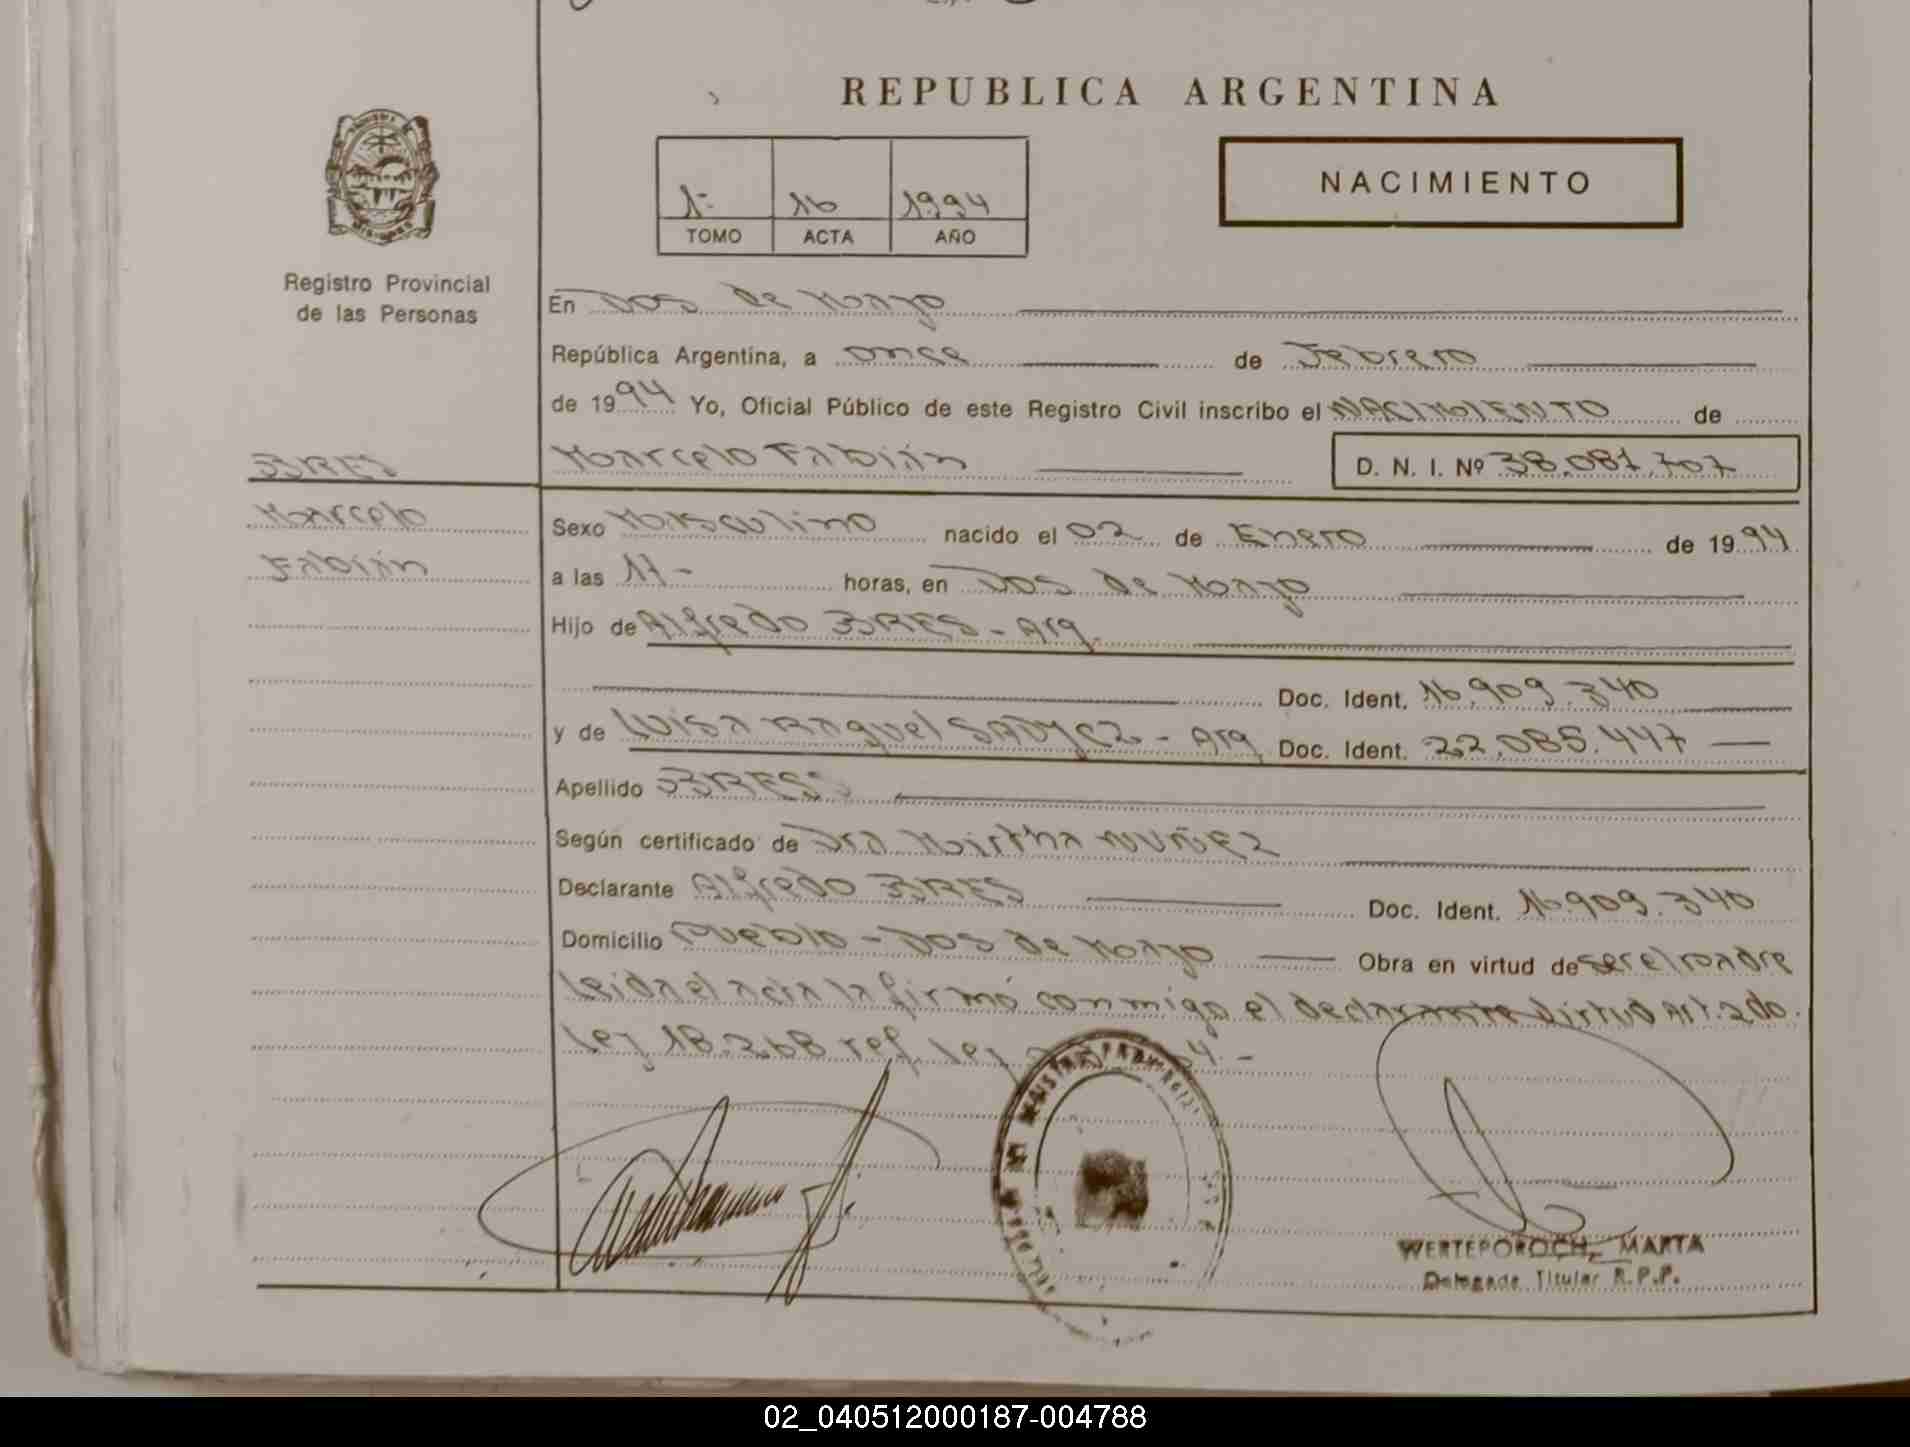 REPUBLICA ARGENTINA
NACIMIENTO
1- 16 1994
TOMO ACTA AÑO
Registro Provincial
de las Personas
En Dos de Mayo
República Argentina, a once de Febrero
de 1994 Yo, Oficial Público de este Registro Civil inscribo el NACIMIENTO de
BRES
Marcelo Fabián D. N. I. Nº 38.081.707
Marcelo
Fabián
Sexo Masculino nacido el 02 de Enero de 1994
a las 17- horas, en Dos de Mayo
Hijo de Alfredo BRES - Arg.
Doc. Ident. 16.909.340
y de Luisa Raquel - Arg Doc. Ident. 22.085.447
Apellido BRES
Según certificado de Dra Mirtha NUÑEZ
Declarante Alfredo BRES Doc. Ident. 16.909.340
Domicilio Pueblo - Dos de Mayo Obra en virtud de ser el padre
Leida el acta la firmó conmigo el declarante virtud Art. 2do.
Ley 18.268 ref. Ley
REGISTRO PROVINCIAL
WERTEPOROCH, MARTA
Delegada Titular R.P.P.
02_040512000187-004788